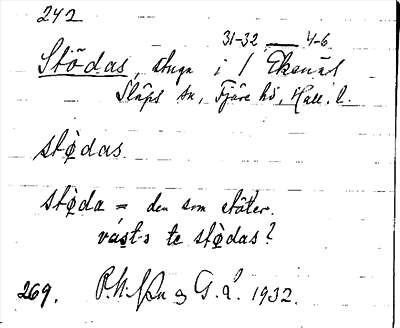 242
31-32, 4-6
Stödas, stuga i / Ekenäs
Släps sn, Fjäre hd, Hall. l.
stø̀das.
stø̀da = den som stöter.
väst-s te stø̀das?
269. og G. L. 1932.